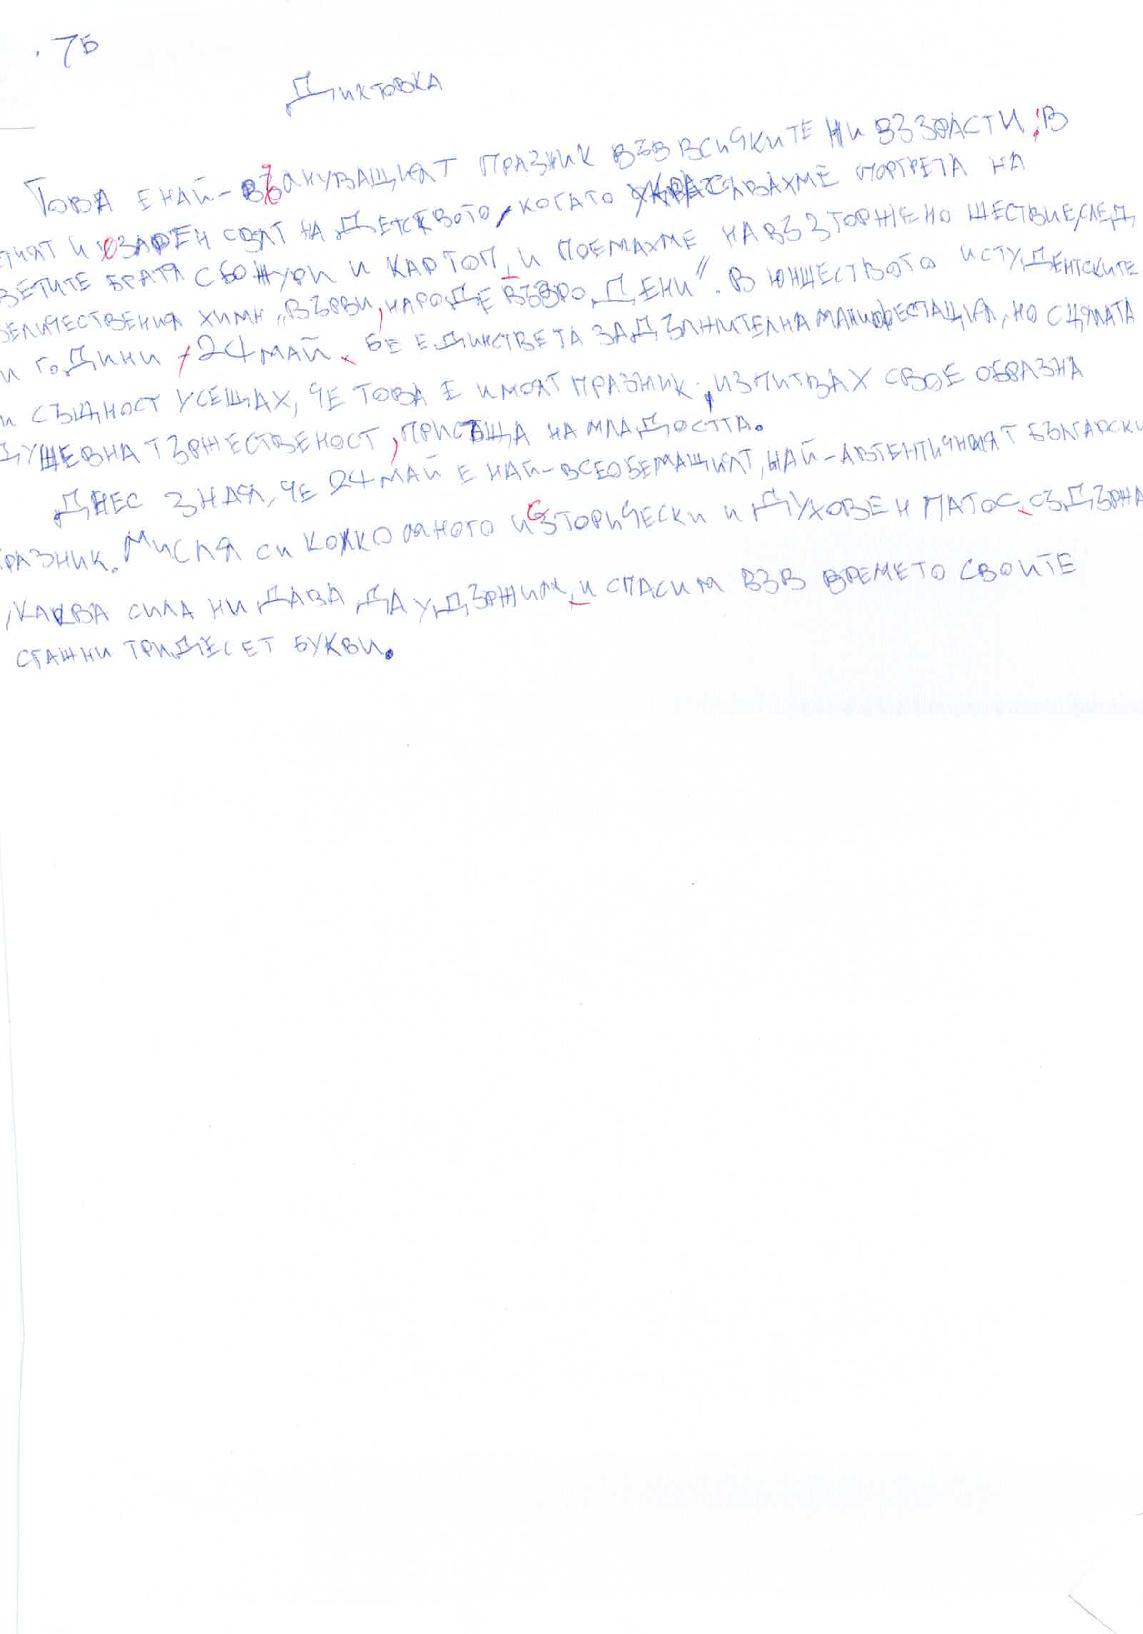 7Б
Диктовка
Това е най-вълнуващият празник във всичките ни възрасти; в
и озарен свят на детството, когато украсявахме портрета на
ветите братя с божури и картоп, и поемахме на въззторжено шествие, след
величествения химн „Върви, народе възро дени". В юнществото и студентските
и години - 24 май бе единствета задължителна манифестация, но с цялата
и същност усещах, че това е и моят празник, изпитвах свое образна
душевна тържественост, присъща на младостта.
Днес зная, че 24 май е най-всеобемащият, най-автентичният Български
разник. Мисля си колко много изторически и духовен патос създържа
, каква сила ни дава да удържим, и спасим във времето своите
стажни тридесет букви.